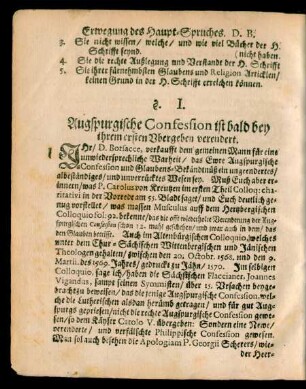 Erwegung des Haupt-Spruches. D. B.
3. Sie nicht wissen/ welche/ und wie viel Bücher der H. Schrifft seynd. nicht haben.
4. Sie die rechte Außlegung und Verstande der H. Schrifft
5. Sie ihrer fürnehmbsten Glaubens und Religion Articklen/
keinen Grund in der H. Schrifft erreichen können.
§. I.
Augspurgische Confession ist bald bey
ihrem ersten Ubergeben verendert.
IHr/ D. Botsacce, verkaufft dem gemeinen Mann für eine
unwiedersprechliche Warheit/ das Ewre Augspurgische
Confession und Glaubens-Bekändtnüß ein ungeendertes/
albeständiges/ und unverrücktes Wesen sey. Muß Euch aber er-
innern/ was P. Carolus von Kreutzen im ersten Theil Colloq: cha-
ritativi in der Vorrede am 55. Blade saget/ und Euch deutlich ge-
nug vorstellet/ was massen Musculus auff dem Hertzbergischen
Colloquio fol: 92. bekennet/ das
den Glauben betrifft. Auch im Altenbürgischen Colloquio, welches
unter dem Chur-Sächsischen Wittenbürgischen und Jänischen
Theologen gehalten/ zwischen den 20. Octobr. 1568. und den 9.
Martii. des 1569. Jahres/ gedruckt zu Jähn/ 1570. Im selbigen
Colloquio, sage ich/ haben die Sächsischen Flaccianer, Joannes
Vigandus, sampt seinen Synmisten/ über 15. Ursachen beyge-
bracht zu beweisen/ das die jenige Augspurgische Confession, wel-
che die Lutherischen alsdan herümb getragen/ und für gut Aug-
spurgs gepriesen/ nicht die rechte Augspurgische Confession gewe-
sen/ so dem Käyser Carolo V. übergeben: Sondern eine Newe/
verenderte/ und verfälschte Philippische Confession gewesen.
Man sol auch besehen die Apologiam P. Georgii Scherers/ wie-
der Heer-